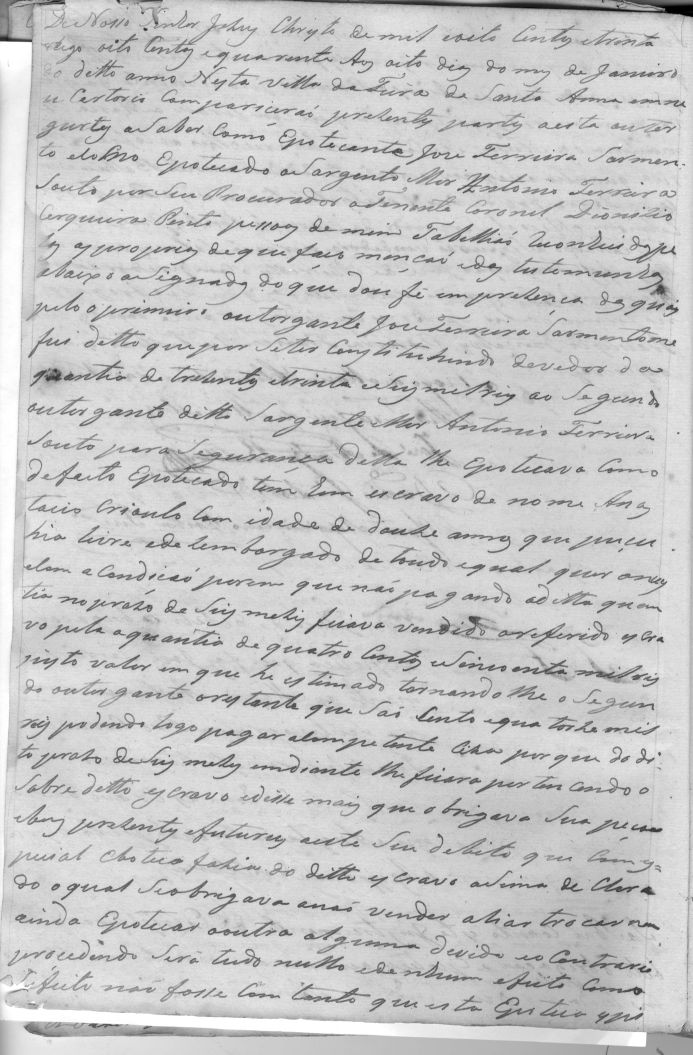 De Nosso Senhor Jesus Christo de mil eoito Centos etrinta
digo oito Centos equarenta Aos oito dias do mes de Janeiro
do ditto anno Nesta Villa da Feira de Santa Anna em me
u Cartorio Compariceraó prezentes partes aesta outor
gantes aSaber Comó Epotecante Joze Ferreira Sarmen-
to eComo Epotecado oSargento Mor Antonio Ferreira
Souto por Seu Procurador oTenente Coronel Dionizio
Cerqueira Pinto pessoas de mim Tabelliaó reconhecidos pe
los proprios de que faço mencaó edas testemunhas
abaixo aSignadas do que dou fé em prezenca das quais
pelo oprimeiro outorgante Joze Ferreira Sarmento me
foi ditto que por Seter Constituhindo devedor da
quantia de trezentos etrinta eSeis mil reis ao Segundo
outorgante ditto Sargento Mor Antonio Ferreira
Souto para Seguranca della lhe Epotecava Como
defeito Epotecado tem hum escravo de nome Anas
tacio Crioulo Com idade de douze annos que puçu
hia livre edezembargado de toudo equal quer onus
eCom aCondicaó porem que naó pagando aditta quan
tia noprazo de Seis mezes ficava vendido oreferido escra
vo pela aquantia de quatro Centos eSincoenta mil reis
justo valor em que he estimado tornandolhe o Segun
do outorgante orestante que Saó Cento equatorze mil
reis podendo logo pagar aCompetente Ciza porque do di
to prazo de Seis mezes emdiante lhe ficara pertencendo o
Sobre ditto escravo edisse mais que obrigava Sua peçoa
ebens prezentes efuturos aeste Seu debito que Com es=
pecial Epoteca fazia do ditto escravo aSima de Clara
do oqual Seobrigava anaó vender aliar trocar nem
ainda Epotecar aoutra alguma devida eo Contrario
procedendo Será tudo nullo ede nhum efeito Como
Sefeito naó fosse Com tanto que esta Epoteca